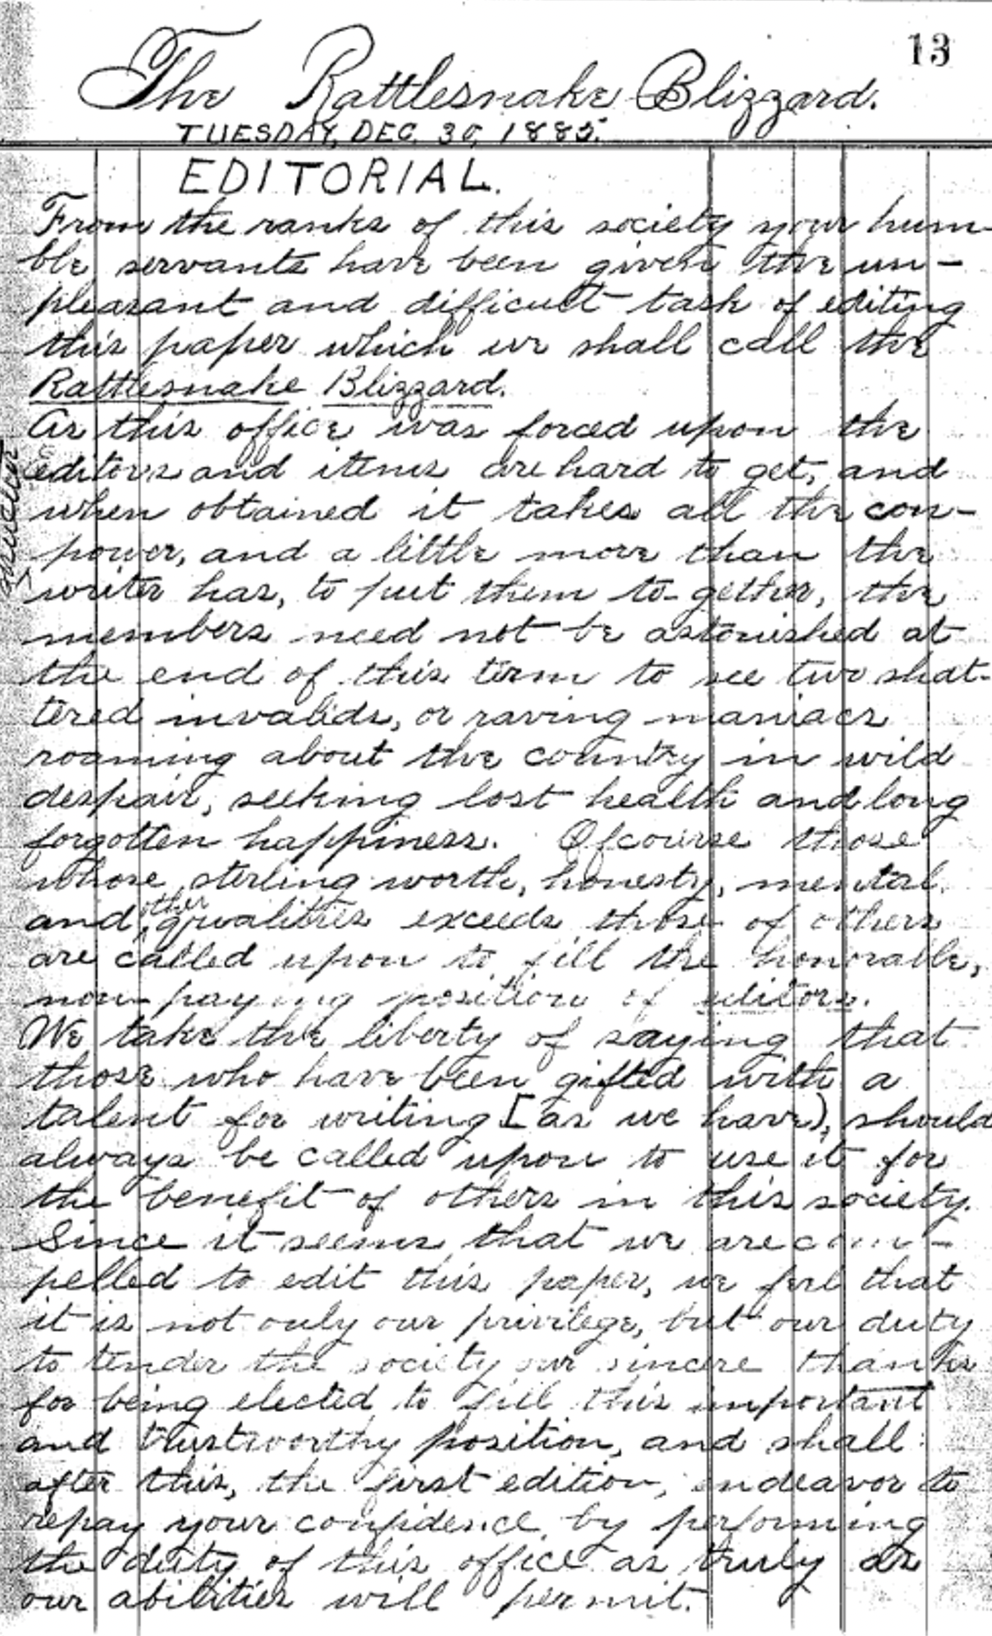 13
The Rattlesnake Blizzard.
TUESDAY, DEC. 30, 1885.
EDITORIAL.
From the ranks of this society your hum-
ble servants have been given the un-
pleasant and difficult task of editing
this paper which we shall call the
Rattlesnake Blizzard.
As this office was forced upon the
editors and items are hard to get, and
when obtained it takes all the con-
power, and a little more than the
writer has, to put them to-gether, the
members need not be astonished at
the end of this term to see two shat-
tered invalids, or raving maniacs
roaming about the country in wild
despair, seeking lost health and long
forgotten happiness. Ofcourse those
whose sterling worth, honesty, mental,
and other qualities exceeds those of others
are called upon to fill the honorable,
non-paying position of editors.
We take the liberty of saying that
those who have been gifted with a
talent for writing [as we have), should
always be called upon to use it for
the benefit of others in this society.
Since it seems that we are com-
pelled to edit this paper, we feel that
it is not only our privilege, but our duty
to tender the society our sincere thanks
for being elected to fill this important
and trustworthy position, and shall
after this, the first edition, endeavor to
repay your confidence by performing
the duty of this office as truly as
our abilities will permit.